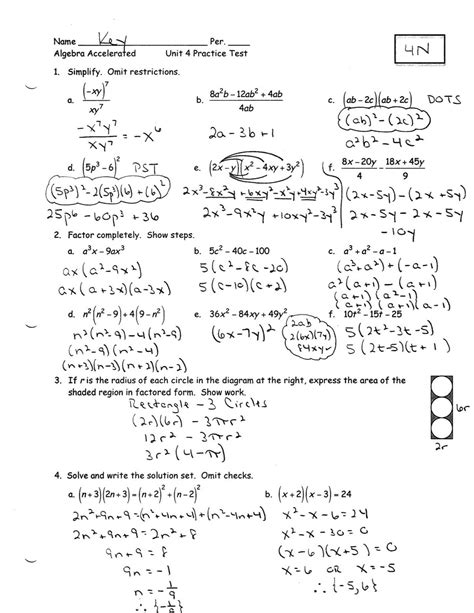 Name Key Per.
Algebra Accelerated Unit 4 Practice Test
4N
1. Simplify. Omit restrictions.
a. (-xy)^7 / xy^7
-x^7y^7 / xy^7 = -x^6
b. 8a²b - 12ab² + 4ab / 4ab
2a - 3b + 1
c. (ab - 2c)(ab + 2c) DOTS
(ab)² - (2c)²
a²b² - 4c²
d. (5p³ - 6)² PST
(5p³)² - 2(5p³)(6) + (6)²
25p⁶ - 60p³ + 36
e. (2x - y)(x² - 4xy + 3y²)
2x³ - 8x²y + 6xy² - x²y + 4xy² - 3y³
2x³ - 9x²y + 10xy² - 3y³
f. 8x - 20y / 4 - 18x + 45y / 9
(2x - 5y) - (2x + 5y)
2x - 5y - 2x - 5y
-10y
2. Factor completely. Show steps.
a. a³x - 9ax³
ax(a² - 9x²)
ax(a + 3x)(a - 3x)
b. 5c² - 40c - 100
5(c² - 8c - 20)
5(c - 10)(c + 2)
c. a³ + a² - a - 1
(a³ + a²) + (-a - 1)
a²(a + 1) - (a + 1)
(a + 1)(a² - 1)
(a + 1)(a + 1)(a - 1)
d. n²(n² - 9) + 4(9 - n²)
n²(n² - 9) - 4(n² - 9)
(n² - 9)(n² - 4)
(n + 3)(n - 3)(n + 2)(n - 2)
e. 36x² - 84xy + 49y²
(6x - 7y)²
2ab
2(6x)(7y)
84xy
f. 10t² - 15t - 25
5(2t² - 3t - 5)
5(2t - 5)(t + 1)
3. If r is the radius of each circle in the diagram at the right, express the area of the
shaded region in factored form. Show work.
Rectangle - 3 Circles
(2r)(6r) - 3πr²
12r² - 3πr²
3r²(4 - π)
6r
2r
4. Solve and write the solution set. Omit checks.
a. (n + 3)(2n + 3) = (n + 2)² + (n - 2)²
2n² + 9n + 9 = (n² + 4n + 4) + (n² - 4n + 4)
2n² + 9n + 9 = 2n² + 8
9n + 9 = 8
9n = -1
n = -1/9
∴ {-1/9}
b. (x + 2)(x - 3) = 24
x² - x - 6 = 24
x² - x - 30 = 0
(x - 6)(x + 5) = 0
x = 6 OR x = -5
∴ {-5, 6}